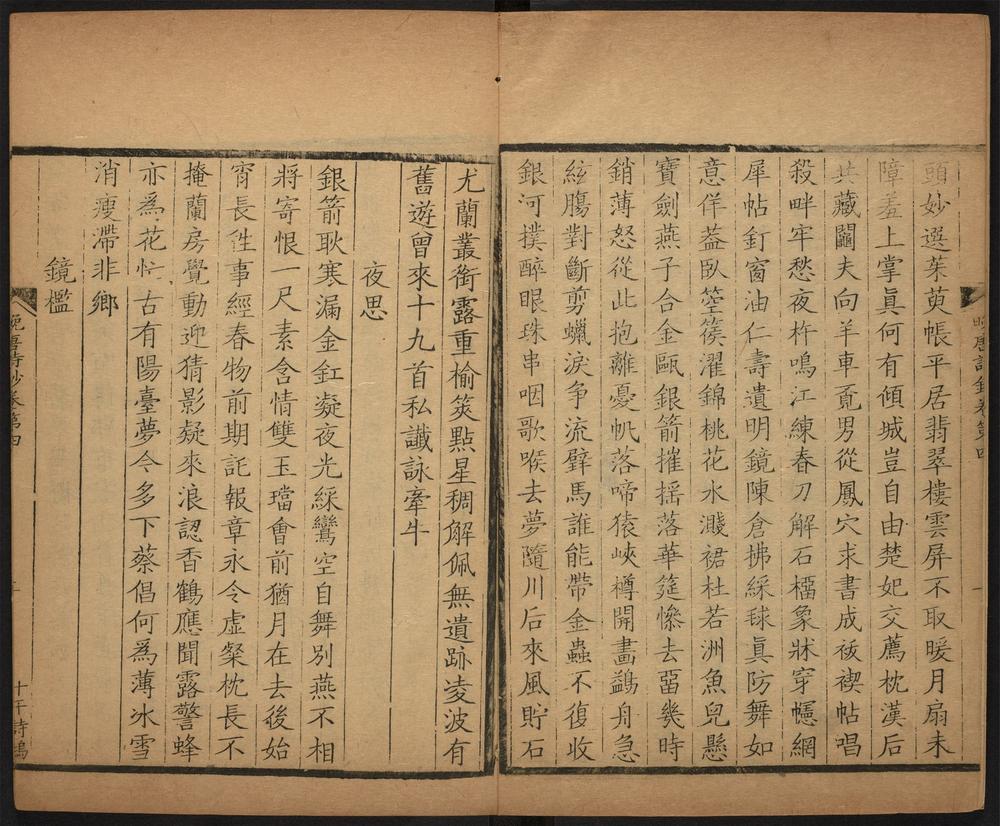 頭妙選茱萸帳平居翡翠樓雲屏不取暖月扇未
障羞上掌真何有傾城豈自由楚妃交薦枕漢后
共藏鬮夫向羊車覔男從鳳穴求書成祓禊帖唱
殺畔牢愁夜杵鳴江練春刀解石榴象牀穿幰網
犀帖釘窗油仁壽遺明鏡陳倉拂綵毬真防舞如
意佯葢臥箜篌濯錦桃花水濺裙杜若洲魚兒懸
寶劍燕子合金甌銀箭摧搖落華筵慘去畱幾時
銷薄怒從此抱離憂帆落啼猿峽樽開畫鷁舟急
絃腸對斷剪蠟淚爭流璧馬誰能帶金蟲不復收
銀河撲醉眼珠串咽歌喉去夢隨川后來風貯石
晚唐詩鈔卷第四
尤蘭叢銜露重榆莢點星稠解佩無遺跡凌波有
舊遊曾來十九首私讖詠牽牛
夜思
銀箭耿寒漏金釭凝夜光綵鸞空自舞別燕不相
將寄恨一尺素含情雙玉璫會前猶月在去後始
宵長往事經春物前期託報章永令虛粲枕長不
掩蘭房覺動迎猜影疑來浪認香鶴應聞露警蜂
亦為花忙古有陽臺夢今多下蔡倡何為薄冰雪
消瘦滯非鄉
鏡檻
晚唐詩鈔卷第四